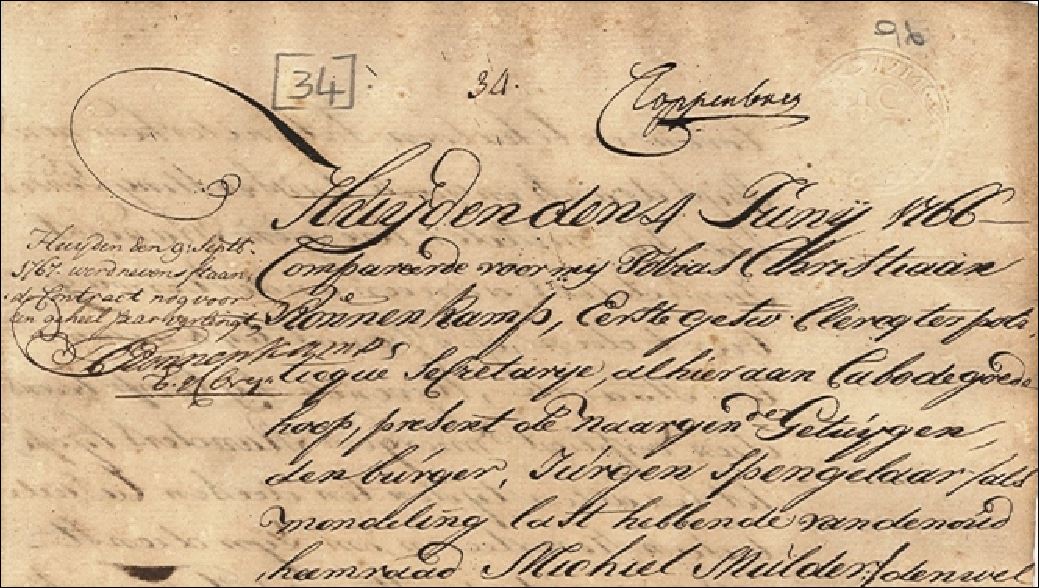 96
34
34.
Coppenbaer
Huyden den 4 Junij 1766
Compareerde voor mij Tobias Christiaan
Rönnenkamp, Eerste getw Clercq ter poli:
ticque Secretarije, alhier aan Cabo de goede
hoop, present de naargende Getuijgen,
den burger, Jurgen Spengelaar /:als
mondeling last hebbende van den oud
heemraad Michiel Mulder:/ den wel
Huyden den 9: Septb:
1767. werd nevenstaan
de Contract nog voor
een geheel jaar verlengt
Rönnenkamp